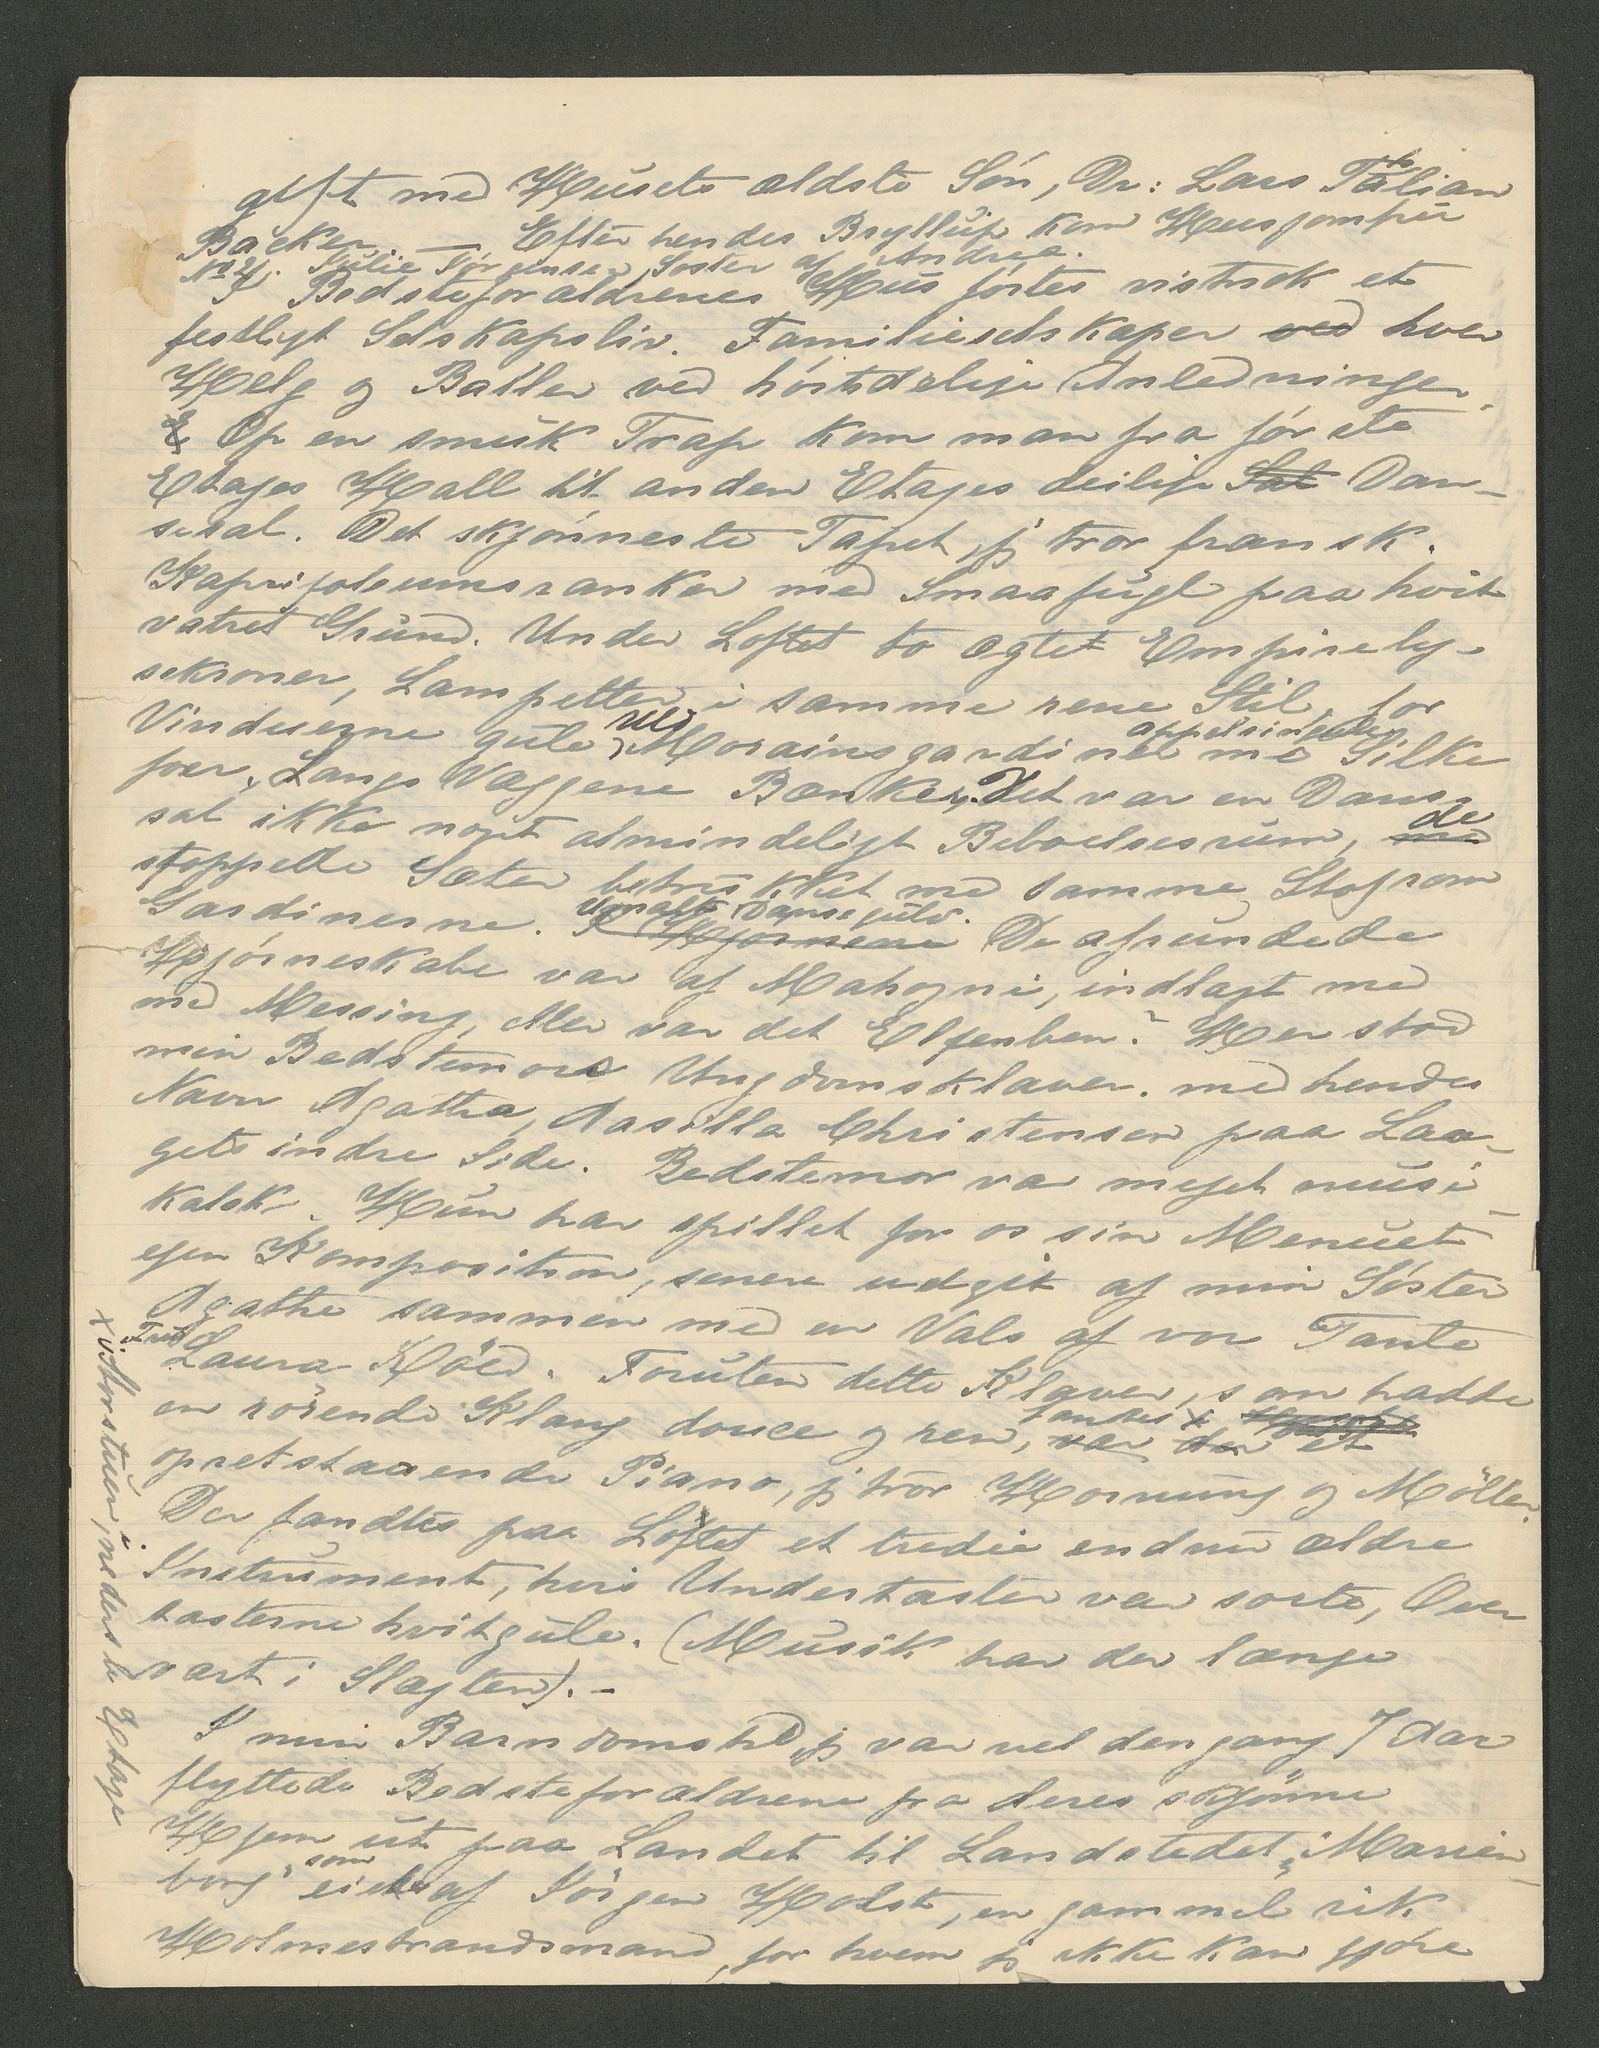 gift med Husets ældste Søn, Dr: Lars
Backer. — Efter hendes Bryllup kom Husjomfru
No 4. Julie Jørgensen, Søster af Andrea.
I Bedsteforældrenes Hus førtes vistnok et
festligt Selskapsliv. Familieselskaper ved hver
Helg og Baller ved høitidelige Anledninger.
E Op en smuk Trap kom man fra første
Etages Hall til anden Etages deilige Sal Dan-
sesal. Det skjønneste Tapet, jg tror fransk.
Kaprifoleumsranker med Smaafugl paa hvit
vatret Grund. Under Loftet to ægte Empirely-
sekroner, Lampetter i samme rene Stil, for
Vinduerne gule Uld Morainsgardiner me appelsingule Silke
foer. Langs Væggene Bænker, Det var en Danse
sal ikke nogt almindeligt Beboelsesrum, med de
stoppede Sæter betrukket med samme Stof som
Gardinerne. I Hjørnene Umalt Dansegulv. De afrundede
Hjørneskabe var af Mahogni, indlagt med
med Messing, eller var det Elfenben? Her stod
min Bedstemors Ungdomsklaver. med hendes
Navn Agatha, Aasilla Christensen paa Laa-
gets indre Side. Bedstemor var meget musi-
kalsk. Hun har spillet for os sin Menuet
egen Komposition, senere udgit af min Søster
Agathe sammen med en Vals af vor Tante
Fru Laura Röed. Foruten dette Klaver, som hadde
en rörende Klang douce og ren, var der fantes x et
opretstaaende Piano, jg tror Hornung og Möller.
Der fandtes paa Loftet et tredie endnu ældre
Instrument, hvis Undertaster var sorte, Over
tasterne hvitgule. (Musik har der længe
vært i Slægten). -
I min Barndomstid, jg var vel dengang 7 Aar
flyttede Bedsteforældrene fra deres skjönne
Hjem ut paa Landet til Landstedet „Marien
borg" som eides af Jörgen Holst, en gammel rik
Holmestrandsmand, for hvem jg ikke kan gjøre
x i Storstuen, i nederste Etage